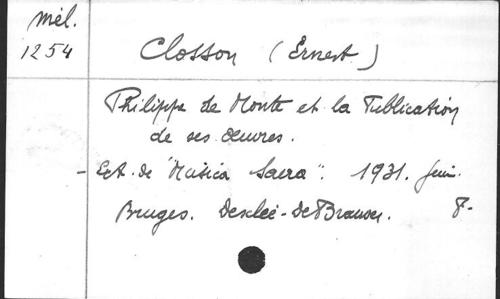 Mél.
1254
Closson (Ernest)
Philippe de Monte et la Publication
de ses œuvres.
- Ext. de "Musica Sacra". 1931. Juin.
Bruges. Desclée-De Brouwer. 8-